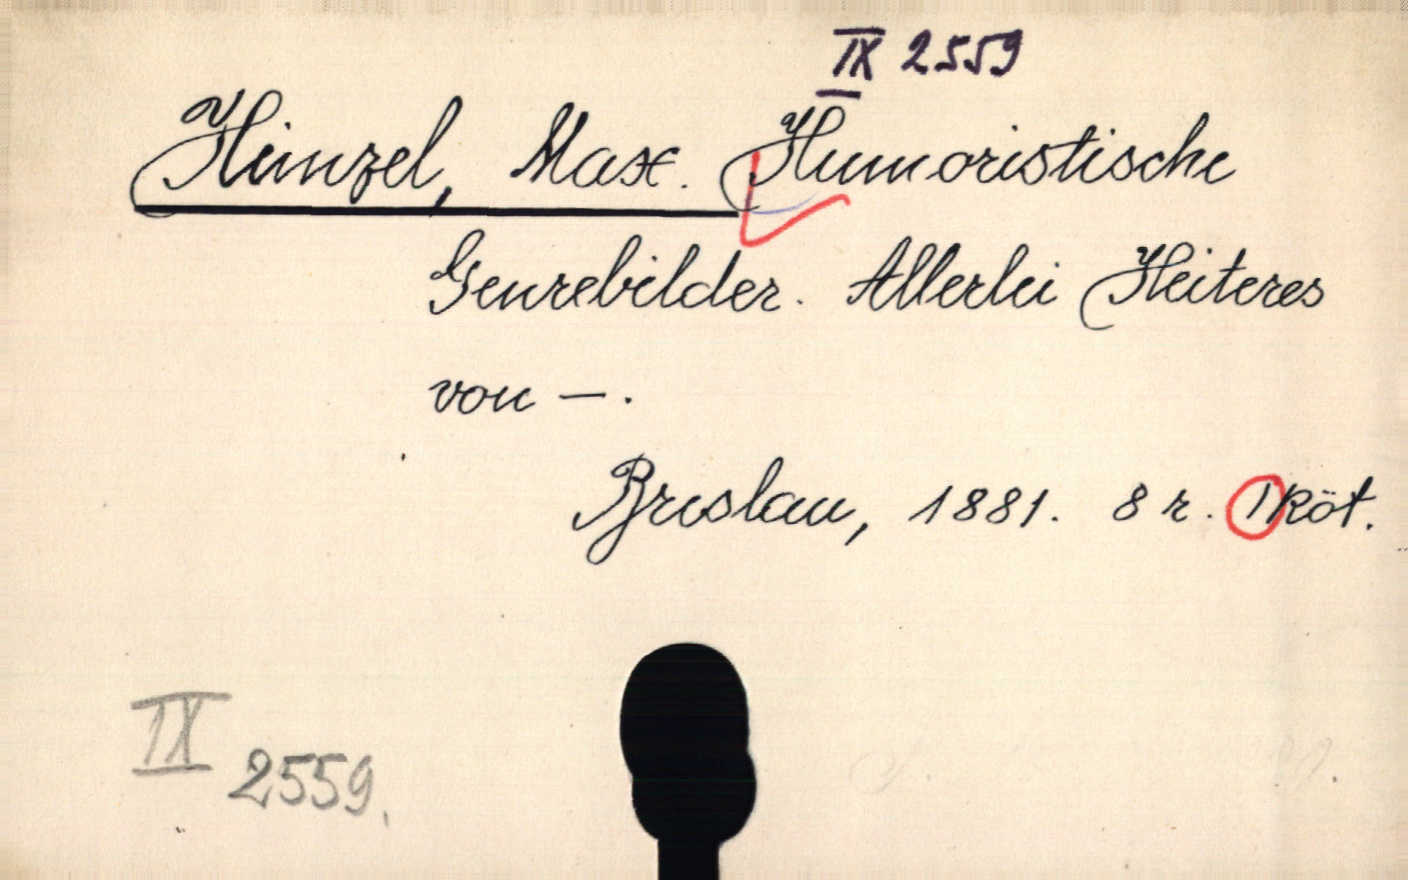 IX 2559
Heinzel, Max. Humoristische
Genrebilder. Allerlei Heiteres
von —.
Breslau, 1881. 8 r. 1 köt.
IX 2559.